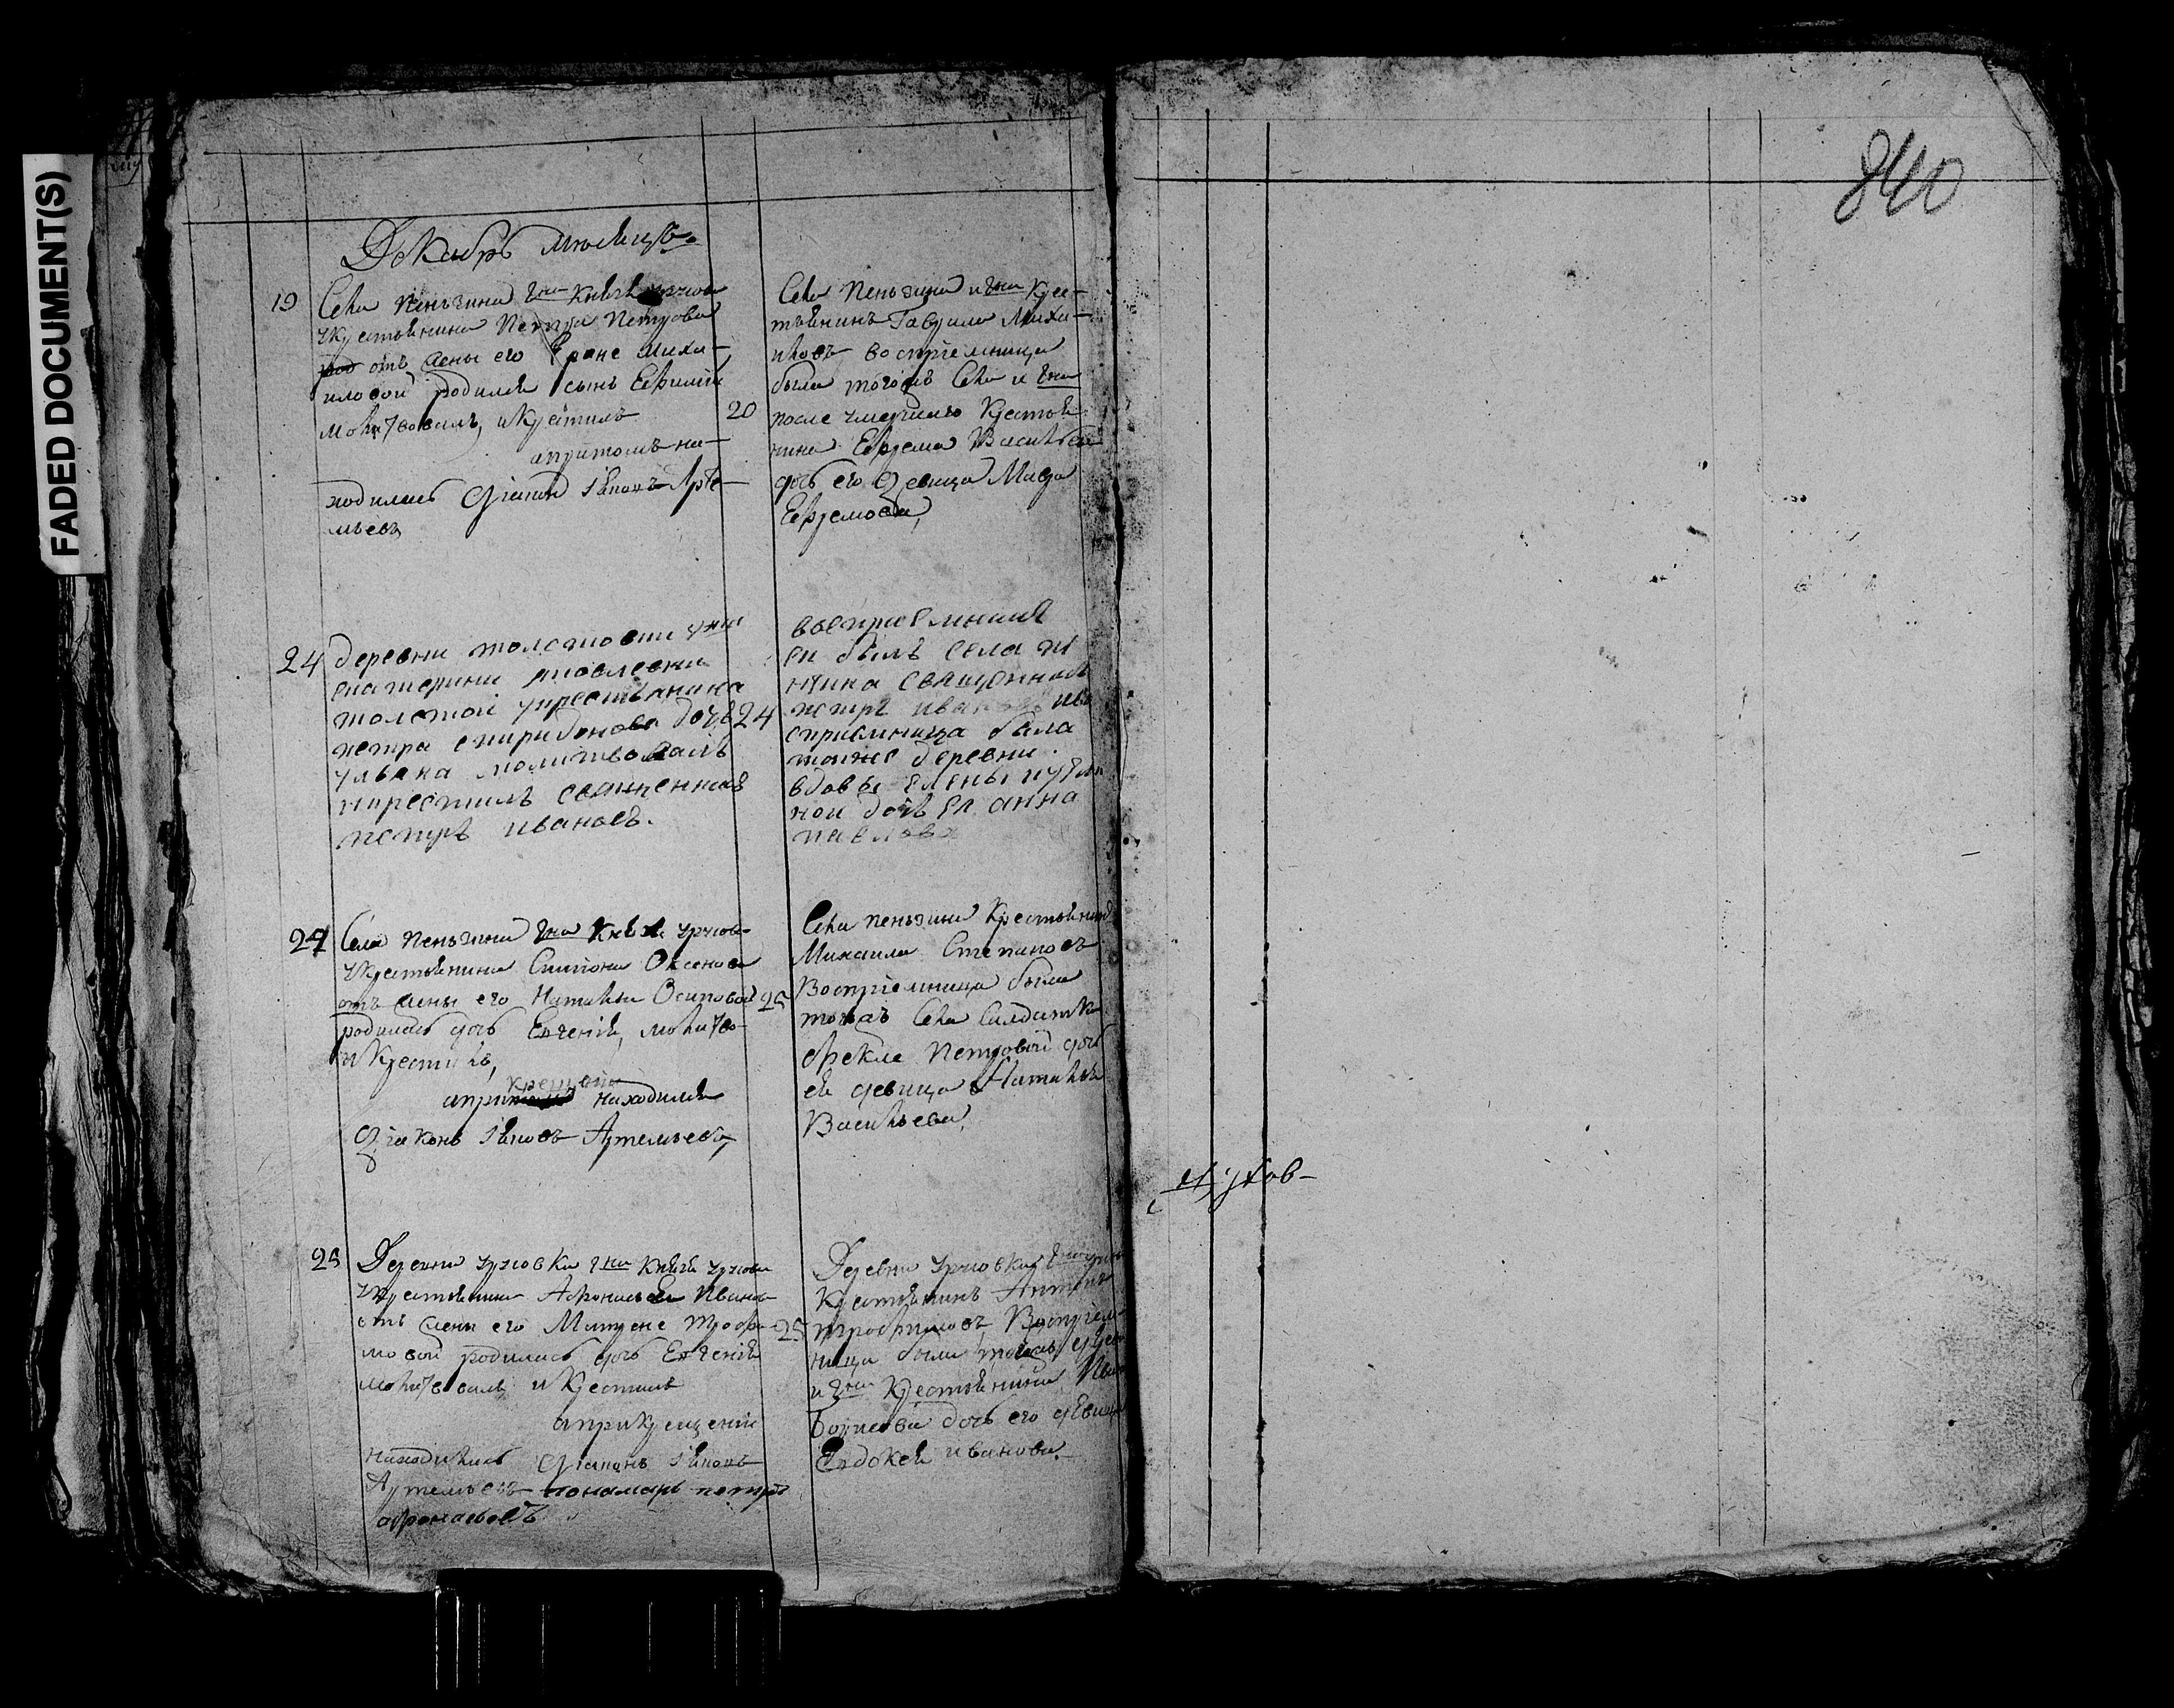 FADED DOCUMENT(S)
840
Декабрь месяцъ
19
Села Пеньзина гна Князя
у крестьянина Петра Петрова
отъ жены его Ерине Михаи-
иловой родился сынъ Ефимъ
молитвовалъ, и крестилъ
апритомъ на-
ходилась Дiаконъ Iяковъ Арте-
мьевъ
Села Пеньзина и гна Крес-
тьянинъ Гаврила Михаи-
иловъ воспрiемница
была тогожъ Села и гна
20
после умершаго Крестья
нина Ефрема Василева
дочь его девица Мавра
Ефремова,
24
деревни толстовки гжи
екатерины яковлевны
толстой у крестьянина
петра спиридонова дочь
ульяна молитвовалъ
икрестилъ священникъ
петръ ивановъ.
восприемник
ен былъ села пе
нзина священникъ
24
петръ иванов ив
сприемница была
тояже деревни
вдовы елены
ной дочь ея анна
павлова
24
Села Пеньзина гна Князя
у крестьянина Симiона Оксенова
отъ жены его Натальи Осиповой
родилась дочь Евгенiя, молитво-
и Крестилъ,
крещенiи
апри находился
Дiаконъ Iяковъ Артемьевъ,
Села пеньзина Крестьянинъ
Михаила Степановъ
Воспрiемница была
25
тогожъ Села Салдатки
Феклы Петровой дочь
ея девица Наталья
Васильева,
25
Деревни гна Князя
у крестьянина Афонасья Иванова
отъ жены его Матрене Трофи-
мовой родилась дочь Евгенiя
молитвовалъ и Крестилъ
априкрещенiи
находились Дiаконъ Iяковъ
Артемьевъ пономарь петръ
афонасьевъ
Деревни
Крестьянинъ Антонъ
25
трофимовъ, Воспрiем-
ница была тойжъ дерев
и гна Крестьянина Иван
Борисова дочь его девица
Евдокея иванова.